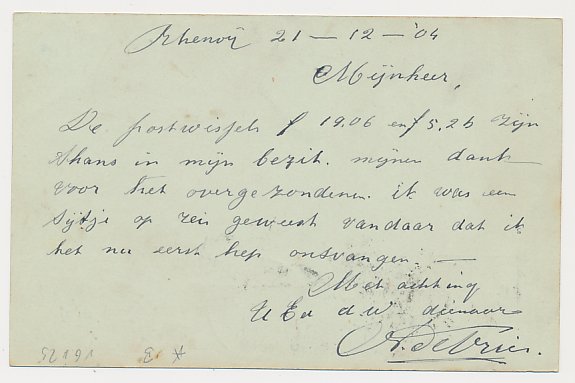 Rhenoij 21 - 12 - '04
Mijnheer,
De postwissels f 19.06 en f 5.25 zijn
thans in mijn bezit. mijnen dank
voor het overgezondenen. ik was een
tijdje op reis geweest vandaar dat ik
het nu eerst heb ontvangen. —
Met achting
UEd dw dienaar
A. de Vries.
A 3 16125